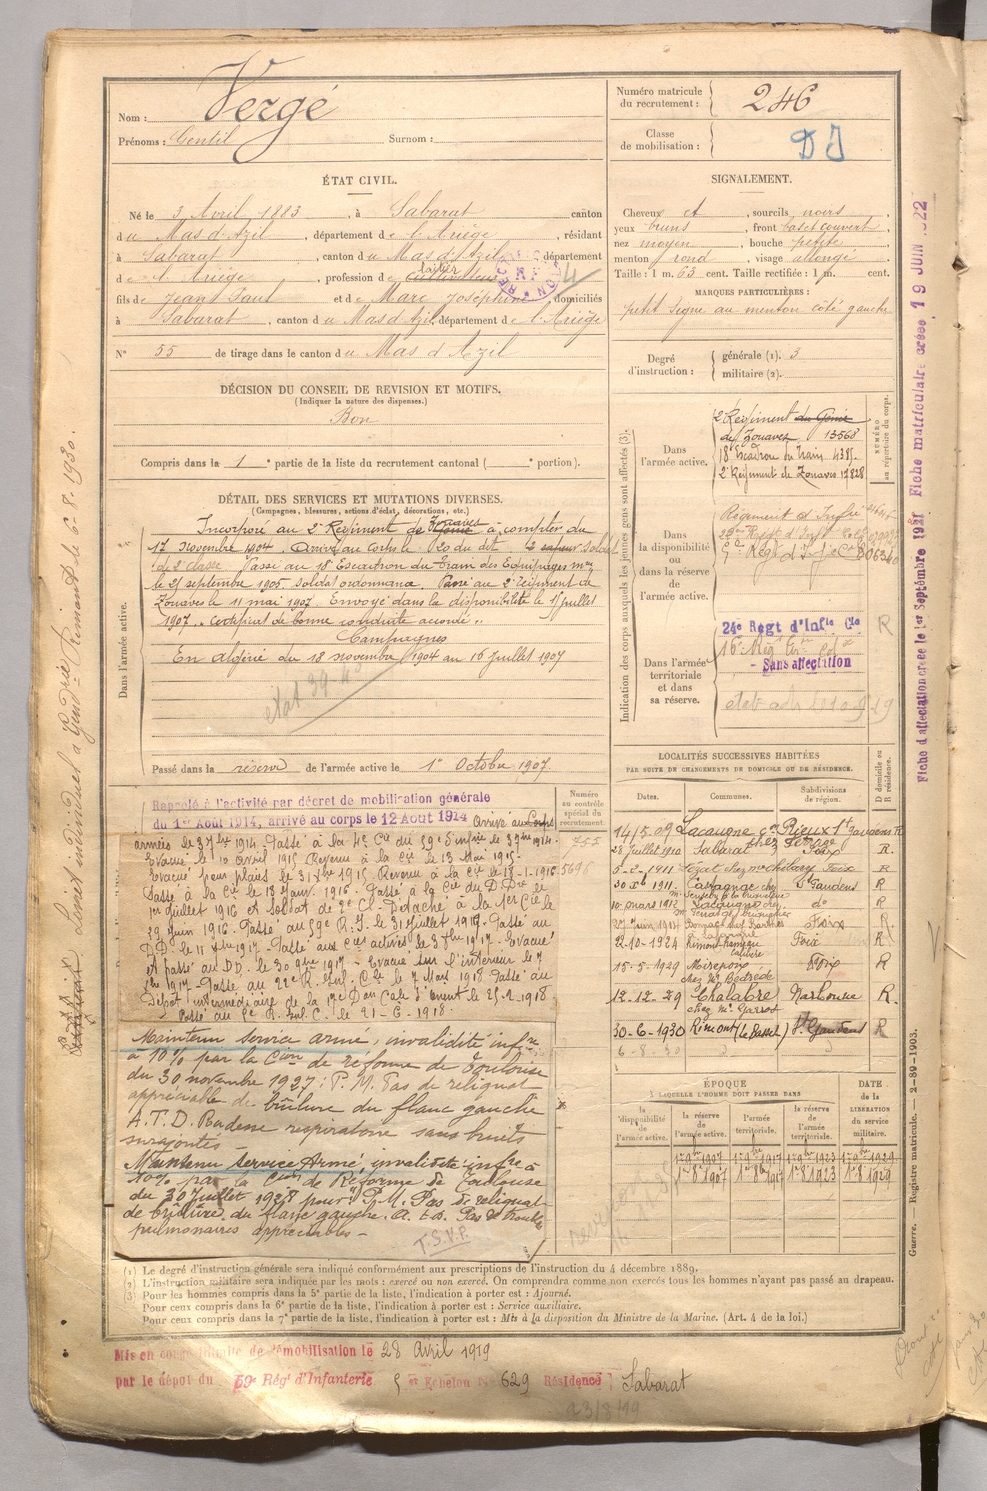 Nom : Vergé
Prénoms : Gentil Surnom :
Numéro matricule du recrutement : 246
Classe de mobilisation : DJ
ÉTAT CIVIL.
Né le 3 Avril 1883, à Sabarat canton
du Mas d'Azil, département de l'Ariège, résidant
à Sabarat, canton du Mas d'Azil département
de l'Ariège, profession de cultivateur laitier
fils de Jean Paul et de Marc Joséphine domiciliés
à Sabarat, canton du Mas d'Azil département de l'Ariège
N° 55 de tirage dans le canton du Mas d'Azil
SIGNALEMENT.
Cheveux et, sourcils noirs
yeux bruns, front bas et couvert
nez moyen, bouche petite
menton rond, visage allongé
Taille : 1 m. 63 cent. Taille rectifiée : 1 m. cent.
MARQUES PARTICULIÈRES :
petit signe au menton côté gauche
Degré d'instruction : générale (1). 3
militaire (2).
DÉCISION DU CONSEIL DE REVISION ET MOTIFS.
(Indiquer la nature des dispenses.)
Bon
Compris dans la 1e partie de la liste du recrutement cantonal ( e portion).
DÉTAIL DES SERVICES ET MUTATIONS DIVERSES.
(Campagnes, blessures, actions d'éclat, décorations, etc.)
Dans l'armée active.
Incorporé au 2e Régiment de Zouaves Génie à compter du
17 Novembre 1904. Arrivé au Corps le 20 du dit 2 sapeur Soldat
de 2 classe. Passé au 18 Escadron du Train des Equipages Mres
le 25 septembre 1905 soldat ordonnance. Passé au 2e Régiment de
Zouaves le 11 mai 1907. Envoyé dans la disponibilité le 15 juillet
1907. "Certificat de bonne conduite accordé".
Campagnes
En Algérie du 18 novembre 1904 au 16 juillet 1907
Passé dans la réserve de l'armée active le 1er Octobre 1907.
Indication des corps auxquels les jeunes gens sont affectés (3).
NUMÉRO au répertoire du corps.
Dans l'armée active.
2 Régiment du Génie
de Zouaves 13568
18e Escadron du Train 4385
2e Régiment de Zouaves 12828
Dans la disponibilité ou dans la réserve de l'armée active.
Régiment d'Infie
Dans l'armée territoriale et dans sa réserve.
24e Regt d'Infie Cle R
- Sans affectation
Rappelé à l'activité par décret de mobilisation générale
du 1er Août 1914, arrivé au corps le 12 Août 1914 Arrivé aux
Numéro au contrôle spécial du recrutement.
755
5698
armées le 3 7bre 1914. Passé à la 4e Cie du 59e d'infie le 3 9bre 1914.
Evacué le 10 avril 1915 Revenu à la Cie le 13 Mai 1915.
Evacué pour plaies le 31 Xbre 1915 Revenu à la Cie le 18-1-1916
Passé à la Cie le 18 Janv. 1916. Passé à la Cie du D. Dre le
1er Juillet 1916 et Soldat de 2e Cl. Détaché à la 1ere Cie le
29 Juin 1916. Passé au 59e R.I. le 31 Juillet 1916. Passé au
D.D. le 11 1917. Passé aux Cies actives le 3 7bre 1917. Evacué
et passé au DD. le 30 9bre 1917. Evacué sur l'intérieur le 7
1917. Passé au 22e R. Inf. Cle le 7 Mars 1918. Passé au
Dépôt intermédiaire de la 17e Don Cale d'Orient le 25-2-1918
Passé au 5e R. Inf. C. le 21-6-1918.
Maintenu service armé, invalidité infre
à 10% par la Cion de réforme de Toulouse
du 30 novembre 1927 : P. M. Pas de reliquat
appréciable de brûlure du flanc gauche
A.T.D. Rudesse respiratoire sans bruits
surajoutés
Maintenu Service Armé, invalidité infre à
10% par la Cion de Réforme de Toulouse
du 30 Juillet 1928 pour P.M. Pas de reliquat
de brûlure du flanc gauche. A. t. d. Pas de troubles
pulmonaires appréciables -
T.S.V.P.
LOCALITÉS SUCCESSIVES HABITÉES
PAR SUITE DE CHANGEMENTS DE DOMICILE OU DE RÉSIDENCE.
Dates. Communes. Subdivisions de région. D domicile ou R résidence.
14/5.09 Lacaugne con Rieux St Gaudens R
28 Juillet 1910 Sabarat Foix R
5-2-1911 Lézat Foix R
30 Xbre 1911 Castagnac chez St Gaudens R
10 mars 1912 Lacaugne chez do R
Foix R
12-10-1924 Rimont Foix R
15-5-1929 Mirepoix Foix R
chez Mr Bedrède
12-12-29 Chalabre Narbonne R
chez Mr Garros
30-6-1930 Rimont (le Bassel) St Gaudens R
6-8-30
ÉPOQUE
À LAQUELLE L'HOMME DOIT PASSER DANS
la disponibilité de l'armée active. la réserve de l'armée active. l'armée territoriale. la réserve de l'armée territoriale.
DATE DE LA LIBÉRATION du service militaire.
1er 8bre 1907 1er 8bre 1917 1er 8bre 1923 1er 8bre 1929
1er 8bre 1907 1er 8bre 1917 1-8-1923 1-8-1929
(1) Le degré d'instruction générale sera indiqué conformément aux prescriptions de l'instruction du 4 décembre 1889.
(2) L'instruction militaire sera indiquée par les mots : exercé ou non exercé. On comprendra comme non exercés tous les hommes n'ayant pas passé au drapeau.
(3) Pour les hommes compris dans la 5e partie de la liste, l'indication à porter est : Ajourné.
Pour ceux compris dans la 6e partie de la liste, l'indication à porter est : Service auxiliaire.
Pour ceux compris dans la 7e partie de la liste, l'indication à porter est : Mis à la disposition du Ministre de la Marine. (Art. 4 de la loi.)
Mis en congé illimité de démobilisation le 28 Avril 1919
par le dépôt du 59e Régt d'Infanterie 5e Echelon n° 629 Résidence Sabarat
23/8/19
Guerre. — Registre matricule. — 2-89-1903.
Fiche d'affectation créée le 1er Septembre 1921 Fiche matriculaire créée 19 JUIN 1922